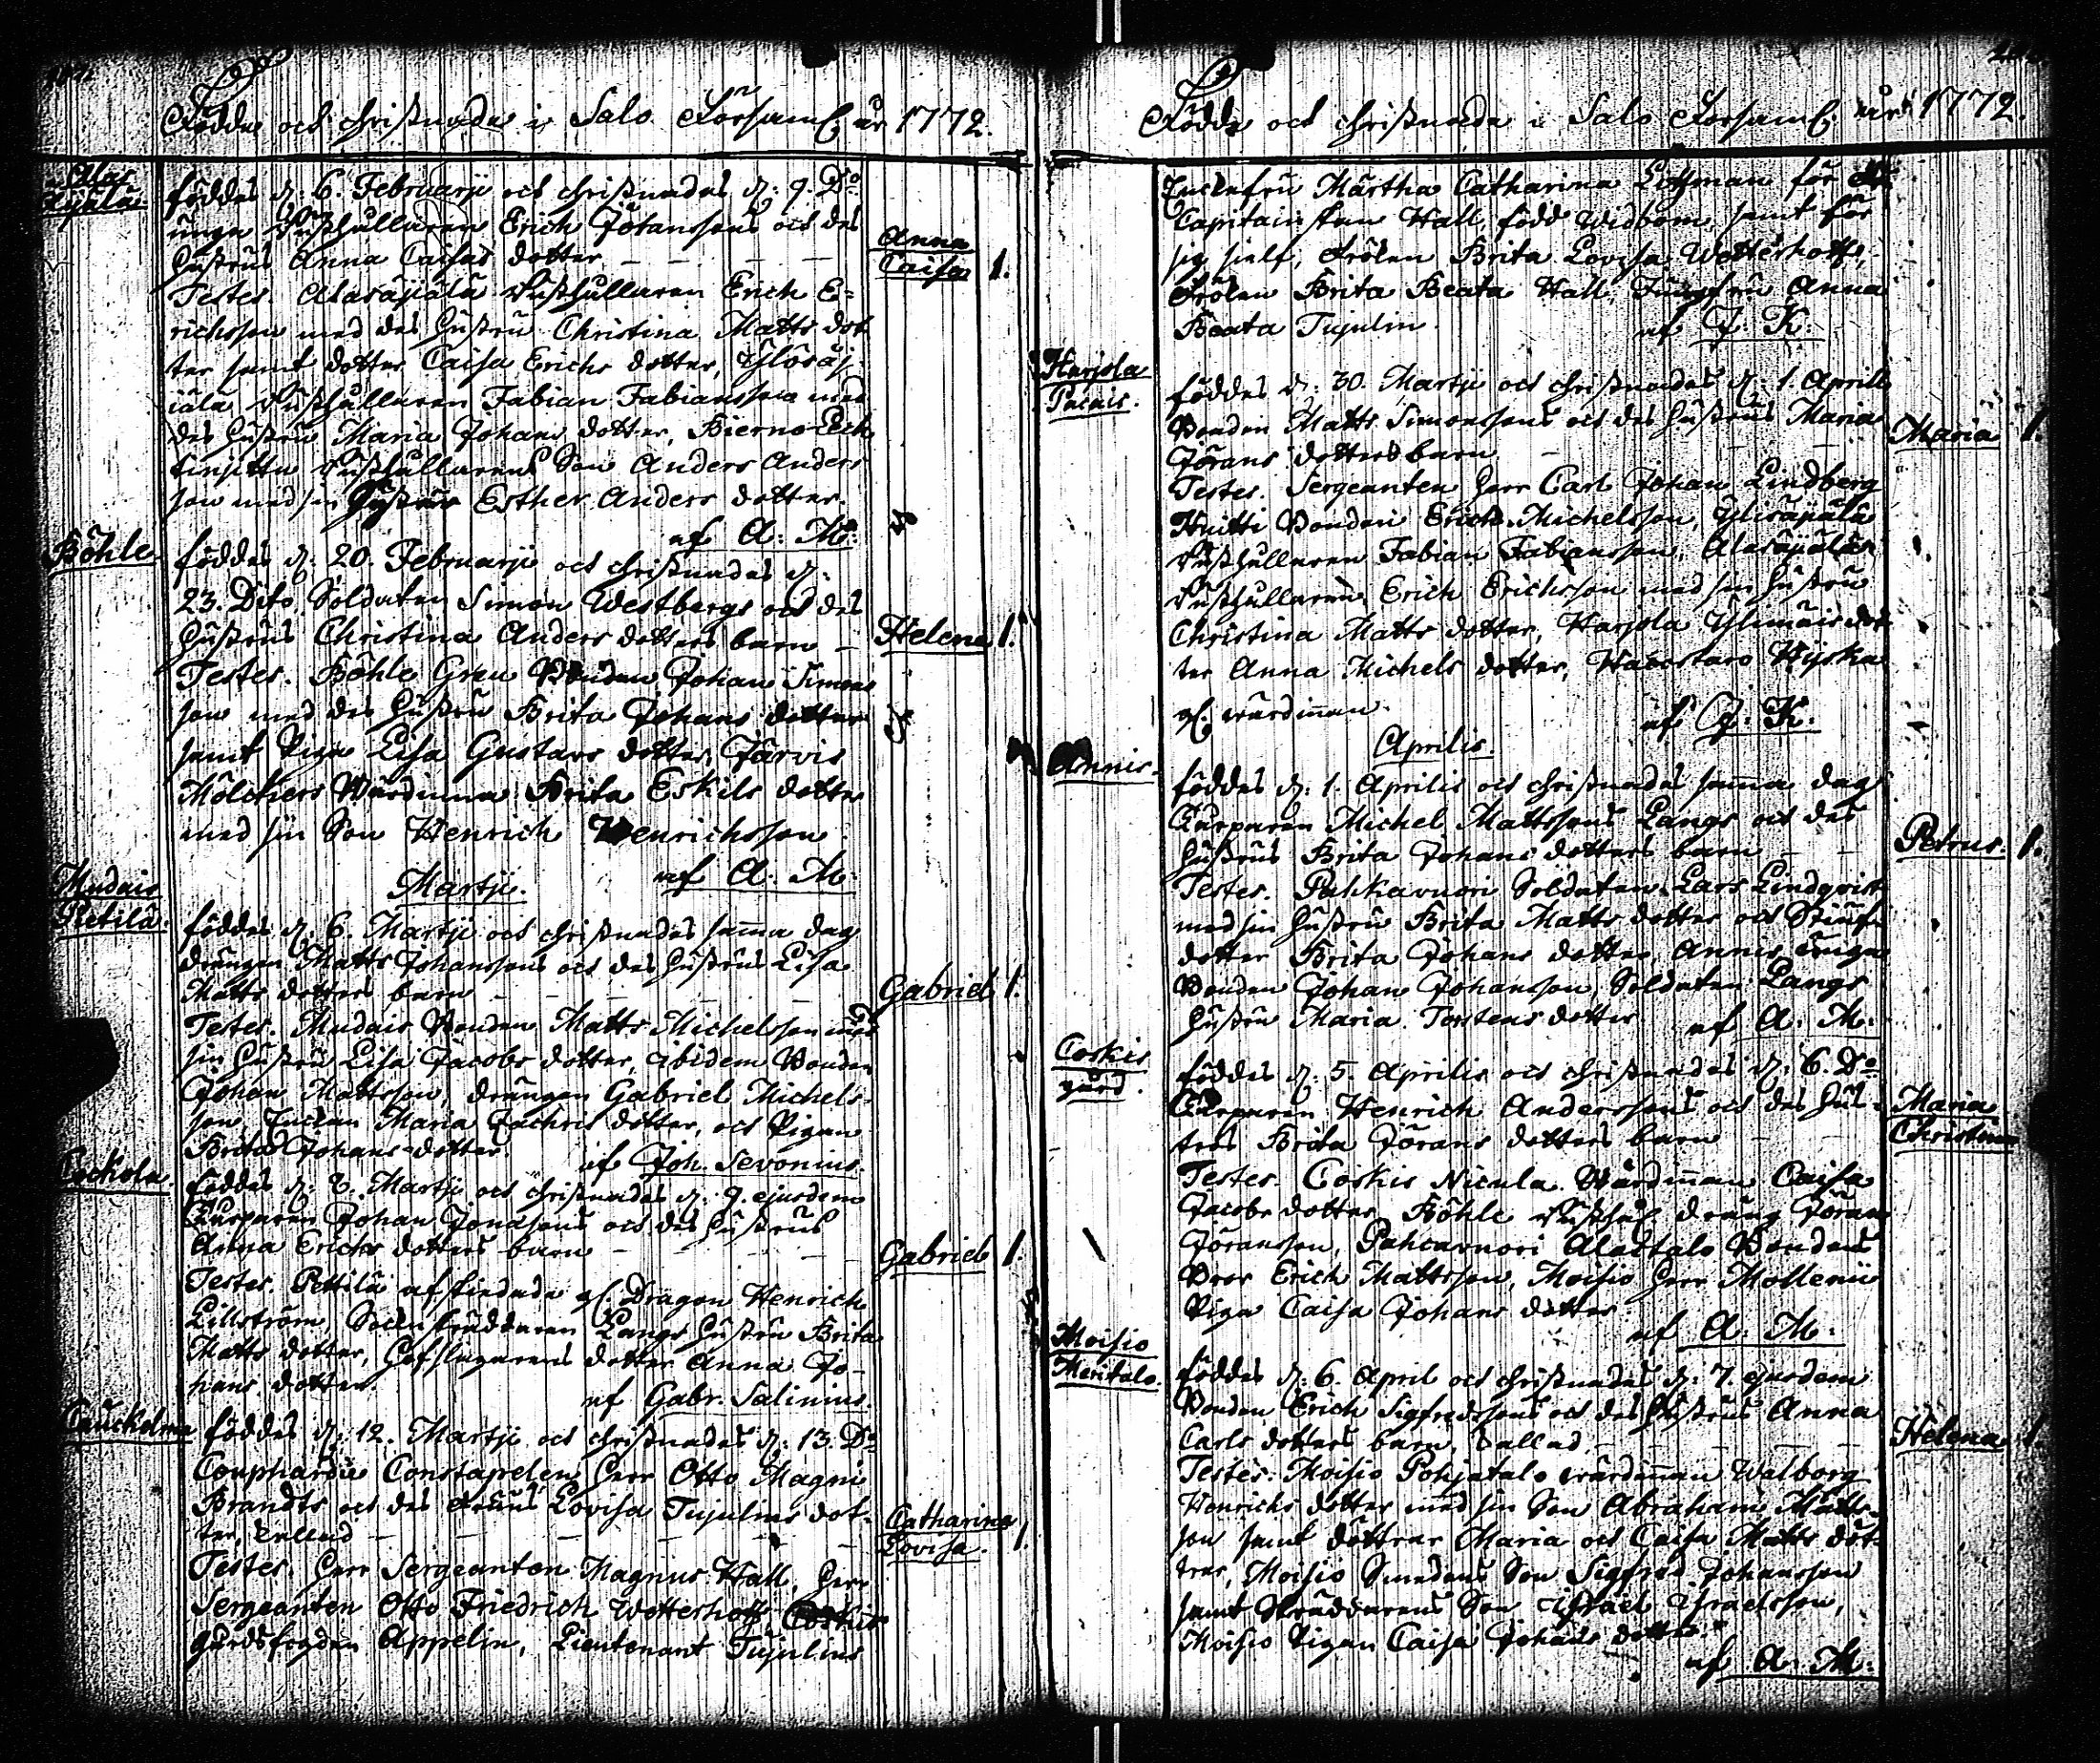 Födde och christnade i Salo Församl. år 1772.
Alas
Äjälä.
föddes d: 6. Februarji och christnades d: 9. Do
unga Rusthållaren Erich Johanssons och des
hustrus Anna Caisas dotter
Anna
Caisa 1.
Testes. Alasäjälä Rusthållaren Erich E-
richsson med des hustru Christina Matts dot
ter samt dotter Caisa Erichs dotter, Ylisäj-
jälä Rusthållaren Fabian Fabiansson med
des hustru Maria Johans dotter, Bierno
Rusthållarens Son Anders Anders
son med sin hustru Esther Anders dotter.
af A: M:
Böhle
föddes d: 20. Februarji och christnades d:
23. Dito Soldaten Simon Westbergs och des
hustrus Christina Anders dotters barn
Helena 1.
Testes. Böhle Gren Bonden Johan Simons
son med des hustru Brita Johans dotter
samt Piga Lisa Gustavs dotter, Jarvis
Mölckers Wärdinna Brita Eskils dotter
med sin Son Henrich Henrichsson
af A. M.
Martji.
Mudais
Pietilä.
föddes d: 6. Martji och christnades samma dag
drängen Matts Johanssons och des hustrus Lisa
Matts dotters barn
Gabriel 1.
Testes. Mudais Bonden Matts Michelsson med
sin hustru Lisa Jacobs dotter, ibidem Bonden
Johan Mattsson, drängen Gabriel Michels-
son, Enckan Maria Zachris dotter, och Pigan
Brita Johans dotter. af Joh. Sevonius.
föddes d: 8. Martji och christnades d: 9. ejusdem
Torparen Johan Jonassons och des hustrus
Anna Erichs dotters barn
Gabriel 1.
Testes. Pettilä afskedade gl. Dragon Henrich
Lillström, Sockenskräddaren Langs hustru Brita
Matts dotter, Hofslagarens dotter Anna Jo-
hans dotter.
af Gabr. Salinius.
föddes d: 12. Martji och christnades d: 13. Do
Constapelen Herr Otto Magni
Brandts och des Fruus Lovisa Tujulins dot-
ter, kallad
Catharina
Lovisa. 1.
Testes. Herr Sergeanten Magnus Hall, Herr
Sergeanten Otto Friedrich Wetterhoff
Gårdsfogden Appelin, Lieutenant Tujulins
Födde och christnade i Salo Församl. år 1772.
Märtha Catharina Littman för
Capitainskan Hall, född Widbom, samt för
sig sielf, Frölen Brita Lovisa Wetterhoff,
Frölen Brita Beata Hall, Jungfru Anna
Beata Tujulin. af J. K.
Harjola
föddes d: 30. Martji och christnades d: 1. Aprilis
Bonden Matts Simonssons och des hustrus Maria
Jörans dotters barn
Maria 1.
Testes. Sergeanten Herr Carl Johan Lindberg
Knitti Bonden Erich Michelsson, Ylisäjälä
Rusthållaren Fabian Fabiansson, Alasäjälä
Rusthållaren Erich Erichsson med sin hustru
Christina Matts dotter, Harjola Ylimais dot
ter Anna Michels dotter,
gl. wärdinnan. af J. K.
Aprilis.
Annis.
föddes d: 1. Aprilis och christnades samma dag
Torparen Michel Mattssons Langs och des
hustrus Brita Johans dotters barn
Petrus. 1.
Testes. Pahkavuori Soldaten Lars Lindqvist
med sin hustru Brita Matts dotter och
dotter Brita Johans dotter, Annis unga
Bonden Johan Johansson, Soldaten Langs
hustru Maria Torstens dotter af A. M.
Coskis
gård.
föddes d: 5. Aprilis och christnades d: 6. Do
Torparen Henrich Anderssons och des hus-
trus Brita Jörans dotters barn
Maria
Christina
Testes. Coskis Nicula Wärdinnan Caisa
Jacobs dotter, Böhle Rusthål. dräng Jöran
Jöransson, Pahcavuori Alastalo Bondens
Bror Erich Mattsson, Moisio Herr Mollerii
Piga Caisa Johans dotter
af A. M:
Moisio
Meritalo.
föddes d: 6. April och christnades d: 7. ejusdem
Bonden Erich Sigfredssons och des hustrus Anna
Carls dotters barn, kallad
Helena 1.
Testes. Moisio Pohjatalo wärdinnan Walborg
Henrichs dotter med sin Son Abraham Matts
son samt döttrar Maria och Caisa Matts döt-
trar, Moisio Smedens Son Sigfred Johansson
samt Skräddarens Son Israel Israelsson,
Moisio Pigan Caisa Johans dotter.
af A. M.